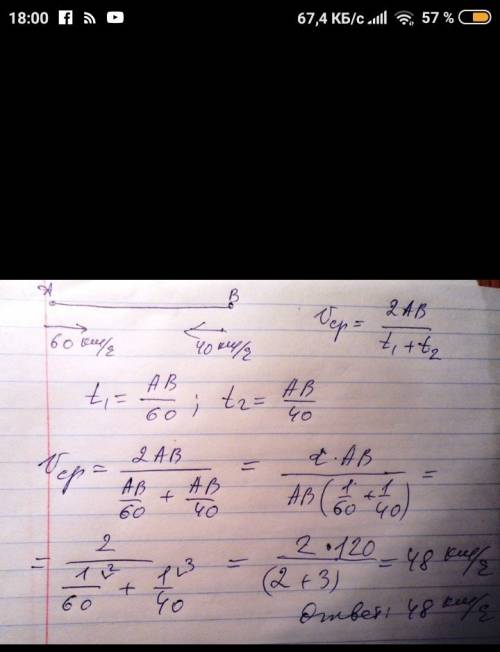 18:00 67,4 КБ/с 57 %
A B
60 км/ч 40 км/ч
Vср = 2AB / (t₁ + t₂)
t₁ = AB/60 ; t₂ = AB/40
Vср = 2AB / (AB/60 + AB/40) = 2·AB / (AB(1/60 + 1/40)) =
= 2 / (1/60 ² + 1/40 ³) = 2·120 / (2+3) = 48 км/ч
Ответ: 48 км/ч